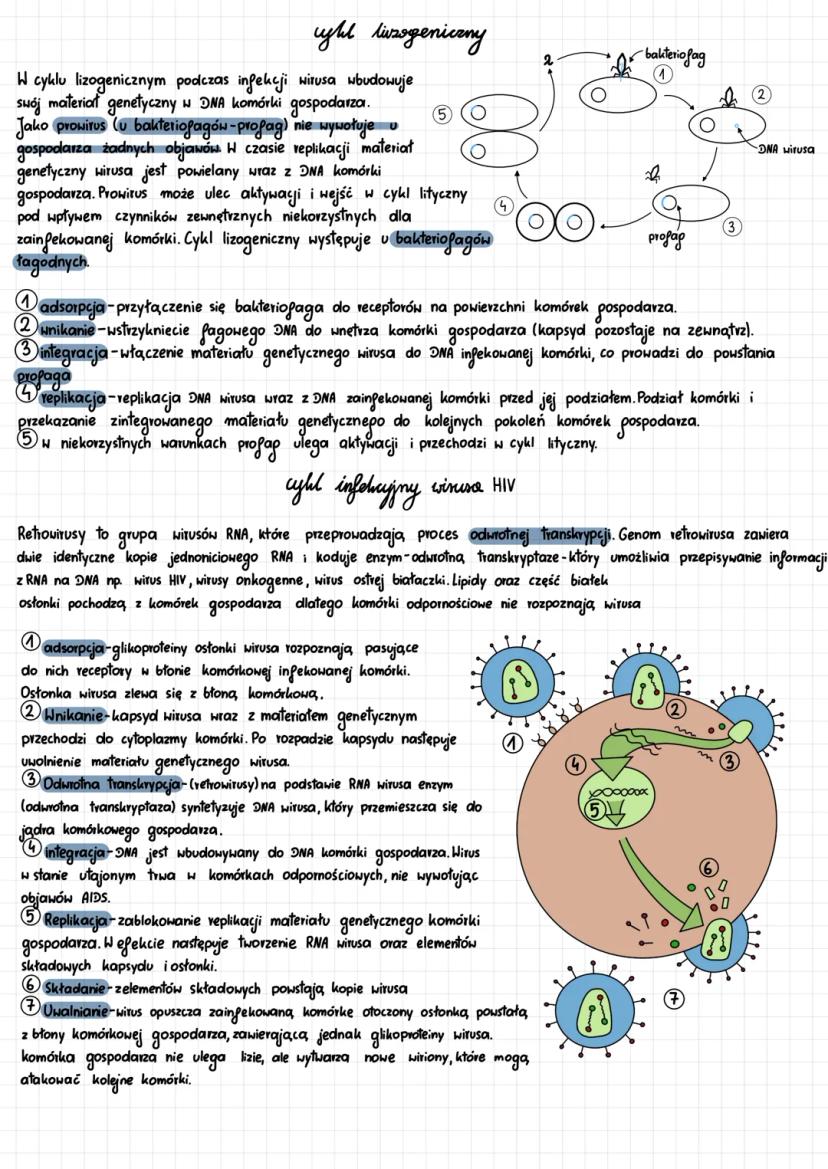 cykl lizogeniczny
W cyklu lizogenicznym podczas infekcji wirusa wbudowuje
swój materiał genetyczny w DNA komórki gospodarza.
Jako prowirus (u bakteriofagów-profag) nie wywołuje u
gospodarza żadnych objawów. W czasie replikacji materiał
genetyczny wirusa jest powielany wraz z DNA komórki
gospodarza. Prowirus może ulec aktywacji i wejść w cykl lityczny
pod wpływem czynników zewnętrznych niekorzystnych dla
zainfekowanej komórki. Cykl lizogeniczny występuje u bakteriofagów
łagodnych.
bakteriofag
1
2
DNA wirusa
3
profag
4
5
2
1 adsorpcja-przyłączenie się bakteriofaga do receptorów na powierzchni komórek gospodarza.
2 wnikanie-wstrzykniecie fagowego DNA do wnętrza komórki gospodarza (kapsyd pozostaje na zewnątrz).
3 integracja-włączenie materiału genetycznego wirusa do DNA infekowanej komórki, co prowadzi do powstania
profaga
4 replikacja-replikacja DNA wirusa wraz z DNA zainfekowanej komórki przed jej podziałem. Podział komórki i
przekazanie zintegrowanego materiału genetycznego do kolejnych pokoleń komórek gospodarza.
5 w niekorzystnych warunkach profag ulega aktywacji i przechodzi w cykl lityczny.
cykl infekcyjny wirusa HIV
Retrowirusy to grupa wirusów RNA, które przeprowadzają proces odwrotnej transkrypcji. Genom retrowirusa zawiera
dwie identyczne kopie jednoniciowego RNA i koduje enzym-odwrotną transkryptaze-który umożliwia przepisywanie informacji
z RNA na DNA np. wirus HIV, wirusy onkogenne, wirus ostrej białaczki. Lipidy oraz część białek
osłonki pochodzą z komórek gospodarza dlatego komórki odpornościowe nie rozpoznają wirusa
1 adsorpcja-glikoproteiny osłonki wirusa rozpoznają pasujące
do nich receptory w błonie komórkowej infekowanej komórki.
Osłonka wirusa zlewa się z błoną komórkową.
2 Wnikanie-kapsyd wirusa wraz z materiałem genetycznym
przechodzi do cytoplazmy komórki. Po rozpadzie kapsydu następuje
uwolnienie materiału genetycznego wirusa.
3 Odwrotna transkrypcja-(retrowirusy) na podstawie RNA wirusa enzym
(odwrotna transkryptaza) syntetyzuje DNA wirusa, który przemieszcza się do
jądra komórkowego gospodarza.
4 integracja-DNA jest wbudowywany do DNA komórki gospodarza. Wirus
w stanie utajonym trwa w komórkach odpornościowych, nie wywołując
objawów AIDS.
5 Replikacja-zablokowanie replikacji materiału genetycznego komórki
gospodarza. W efekcie następuje tworzenie RNA wirusa oraz elementów
składowych kapsydu i osłonki.
6 Składanie-z elementów składowych powstają kopie wirusa
7 Uwalnianie-wirus opuszcza zainfekowaną komórkę otoczony osłonką powstałą
z błony komórkowej gospodarza, zawierającą jednak glikoproteiny wirusa.
komórka gospodarza nie ulega lizie, ale wytwarza nowe wiriony, które mogą
atakować kolejne komórki.
1
2
3
4
5
6
7